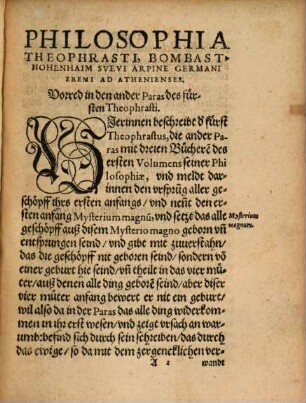 PHILOSOPHIA
THEOPHRASTI, BOMBAST
HOHENHAIM SVEVI ARPINE GERMANI
EREMI AD ATHENIENSES.
Vorred in den ander Paras des für-
sten Theophrasti.
HIerinnen beschreibt d' fürst
Theophrastus, die ander Pa-
ras mit dreien Bücherē des
ersten Volumens seiner Phi
losophiæ, vnd melt dar-
innen den vrsprūg aller ge-
schöpff ihrs ersten anfangs/ vnd neñt den er-
sten anfāg Mysterium magnū/ vnd setzt das alle
Mysterium
magnum.
geschöpff auß disem Mysterio magno geborn vñ
entsprungen seind/ vnd gibt mit zuuerstahn/
das die geschöpff nit geboren seind/ sondern vō
einer geburt hie seind/ vñ theilt in das vier mü-
ter/ auß denen alle ding geborē seind/ aber diser
vier müter anfang bewert er nit ein geburt/
wil also da in der Paras das alle ding widerkom-
men in ihr erst wesen/ vnd zeigt vrsach an war-
umb: befind sich durch sein schreiben/ das durch
das ewige/ so da mit dem zergencklichen ver-
A 2
wandt